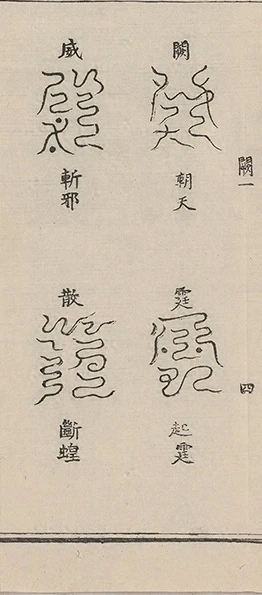 闕一
四
闕
朝天
霆
起霆
威
斬邪
散
斷蝗